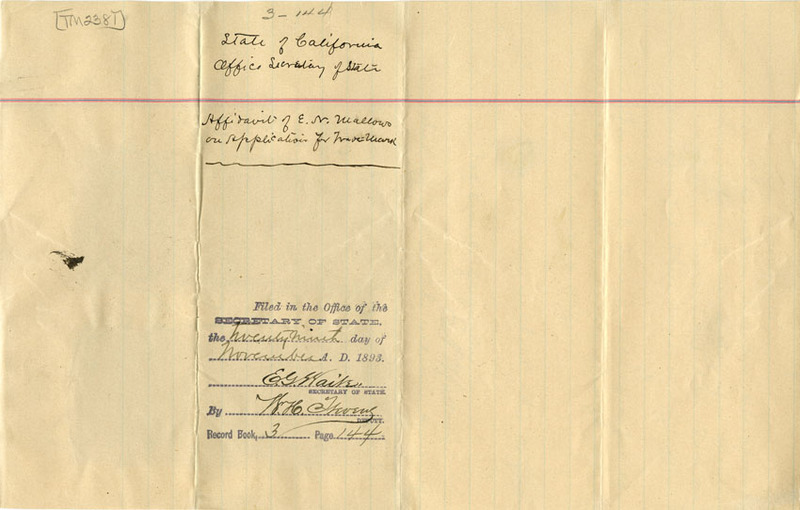 [TM2387]
3-144
State of California
Office Secretary of State
Affidavit of E. N. Mallows
on Application for Trade Mark
Filed in the Office of the
SECRETARY OF STATE,
the Twenty Ninth day of
November A. D. 1893.
E. G. Waite
SECRETARY OF STATE.
By W. H.
DEPUTY.
Record Book, 3 Page 144